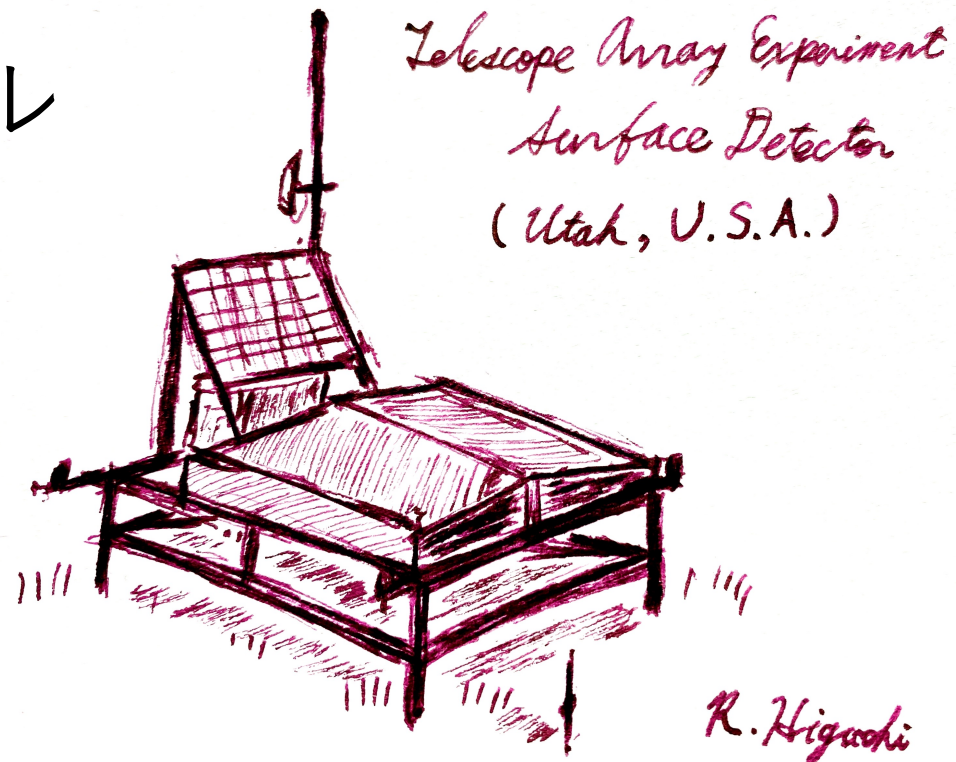 Telescope Array Experiment
Surface Detector
(Utah, U.S.A.)
R. Higuchi